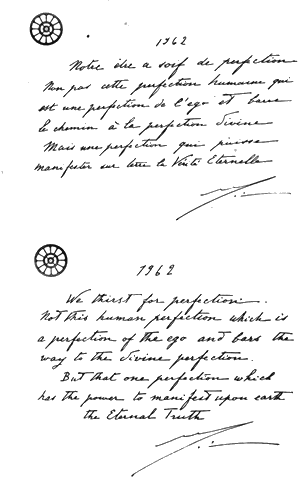 1962
Notre être a soif de perfection
Non pas cette perfection humaine qui
est une perfection de l'ego et barre
le chemin à la perfection divine
Mais une perfection qui puisse
manifester sur terre la Vérité Eternelle
1962
We thirst for perfection.
Not this human perfection which is
a perfection of the ego and bars the
way to the divine perfection.
But that one perfection which
has the power to manifest upon earth
the Eternal Truth